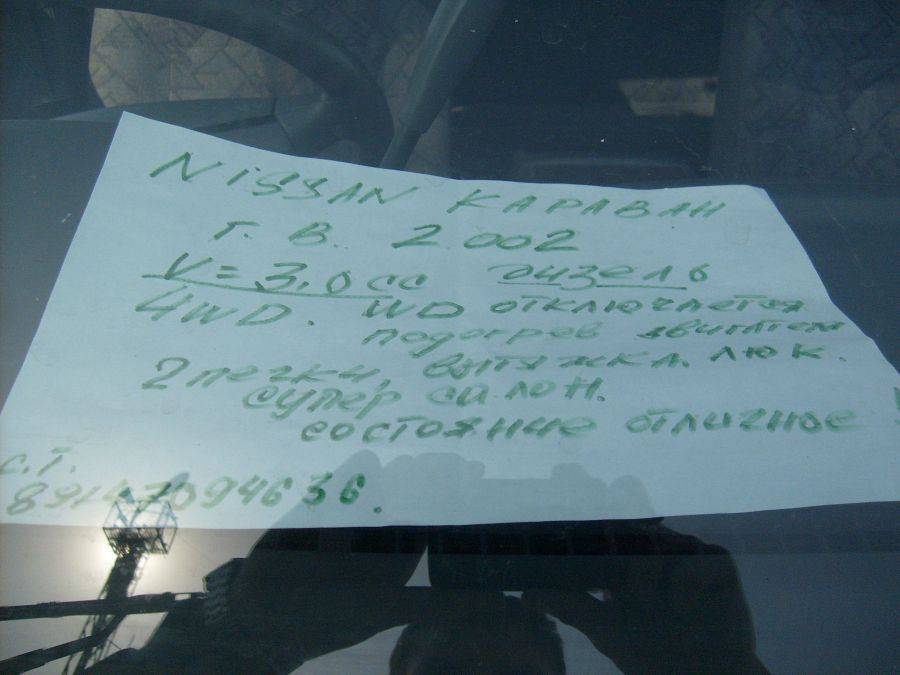 NISSAN КАРАВАН
Г. В. 2002
V = 3,0 сс дизель
4WD. WD отключается
подогрев двигателя
2 печки, вытяжка. люк.
супер салон.
состояние отличное !
с.т.
89147094636.